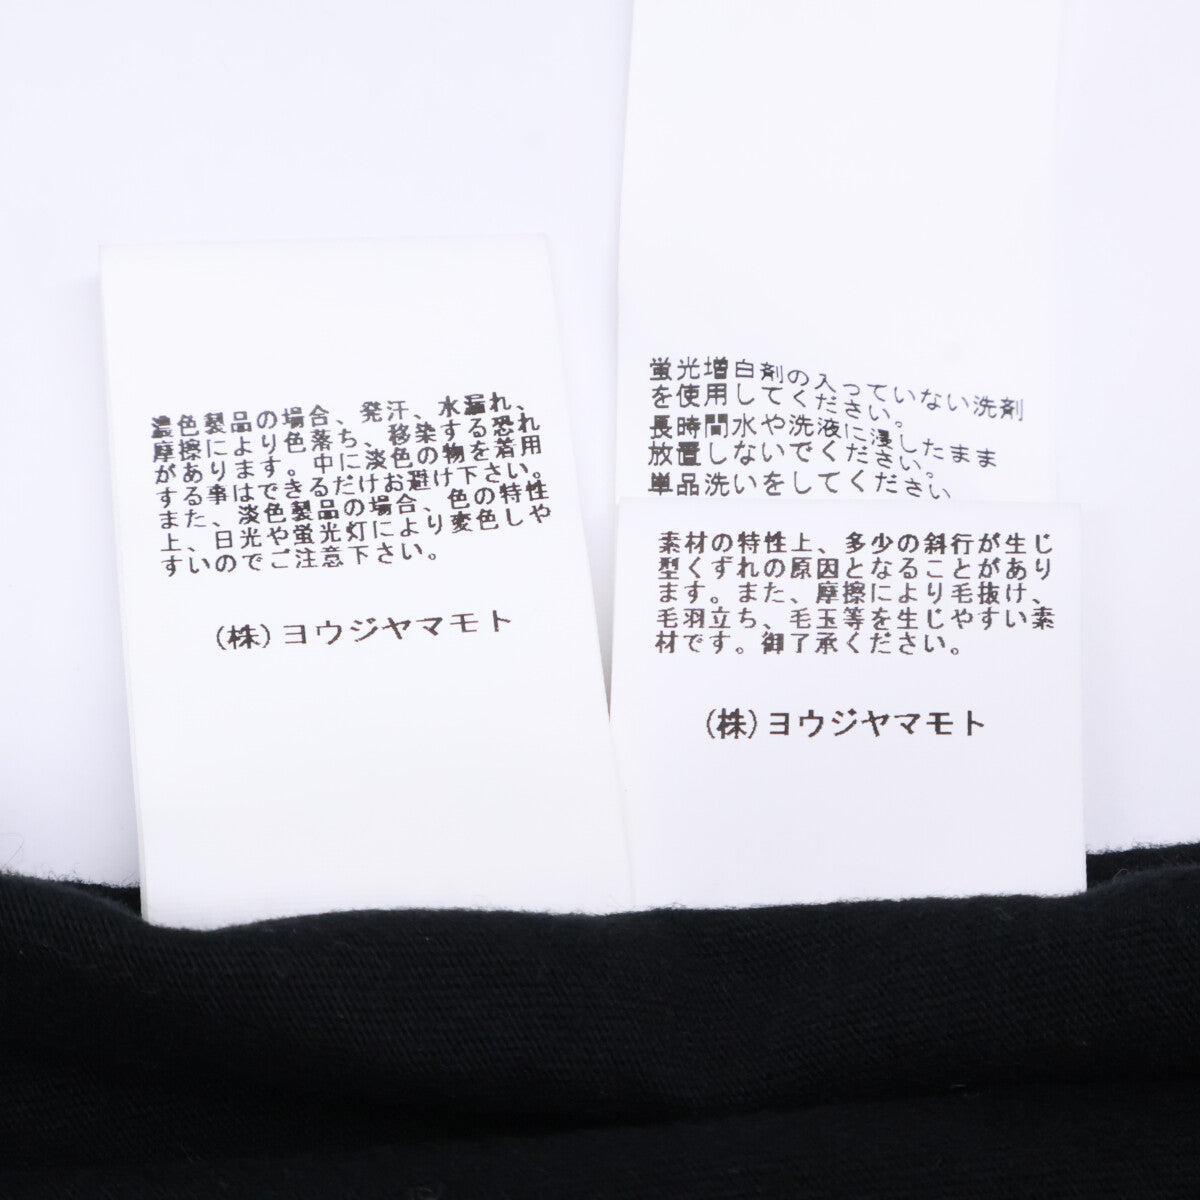 濃色製品の場合、発汗、水漏れ、
摩擦により色落ち、移染する恐れ
があります。中に淡色の物を着用
する事はできるだけお避け下さい。
また、淡色製品の場合、色の特性
上、日光や蛍光灯により変色しや
すいのでご注意下さい。
(株)ヨウジヤマモト
蛍光増白剤の入っていない洗剤
を使用してください。
長時間水や洗液に浸したまま
放置しないでください。
単品洗いをしてください。
素材の特性上、多少の斜行が生じ
型くずれの原因となることがあり
ます。また、摩擦により毛抜け、
毛羽立ち、毛玉等を生じやすい素
材です。御了承ください。
(株)ヨウジヤマモト